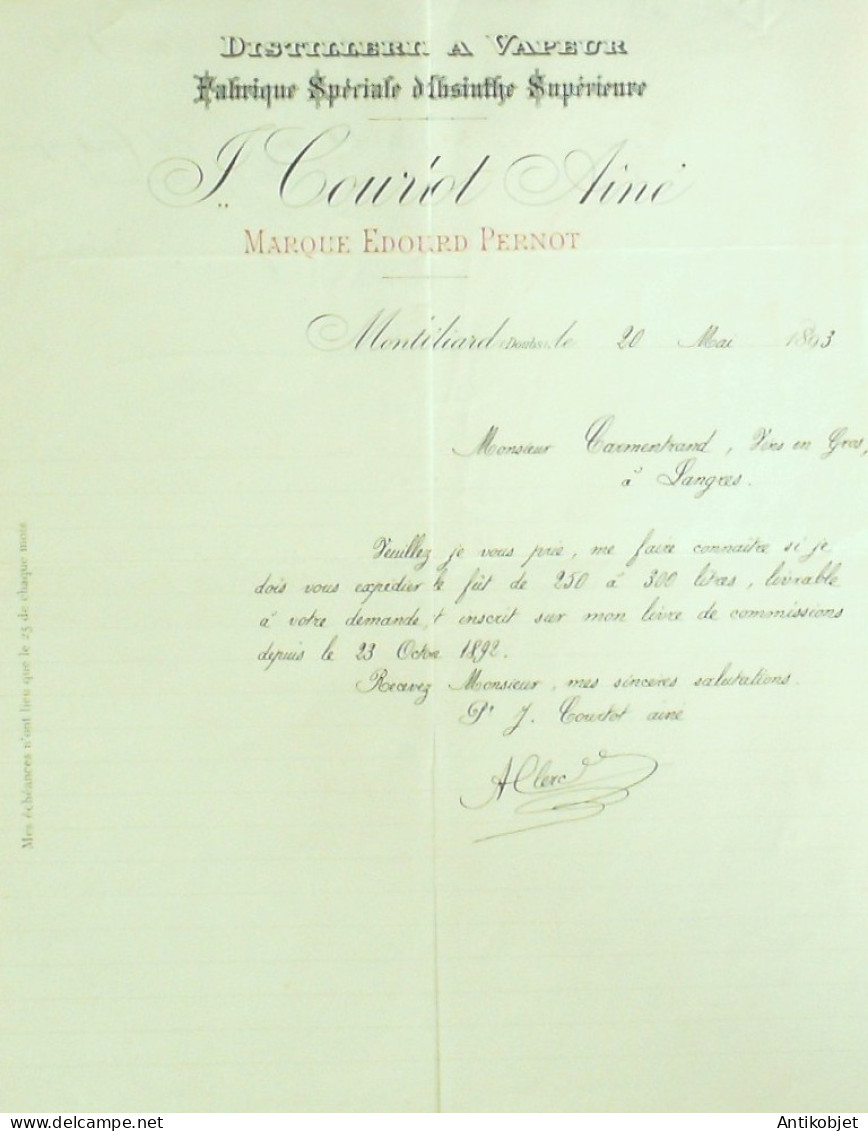 DISTILLERIE A VAPEUR
Fabrique Spéciale d'Absinthe Supérieure
J. Couriot Ainé
MARQUE EDOURD PERNOT
Montéliard (Doubs), le 20 Mai 1893
Monsieur Carmentrand, Vins en Gros,
à Langres.
Veuillez je vous prie, me faire connaître si je
dois vous expédier le fût de 250 à 300 litres, livrable
à votre demande, & inscrit sur mon livre de commissions
depuis le 23 Octbre 1892.
Recevez Monsieur, mes sincères salutations.
Pr J. Courtot ainé
A Clerc
Mes échéances n'ont lieu que le 25 de chaque mois
Antikobjet